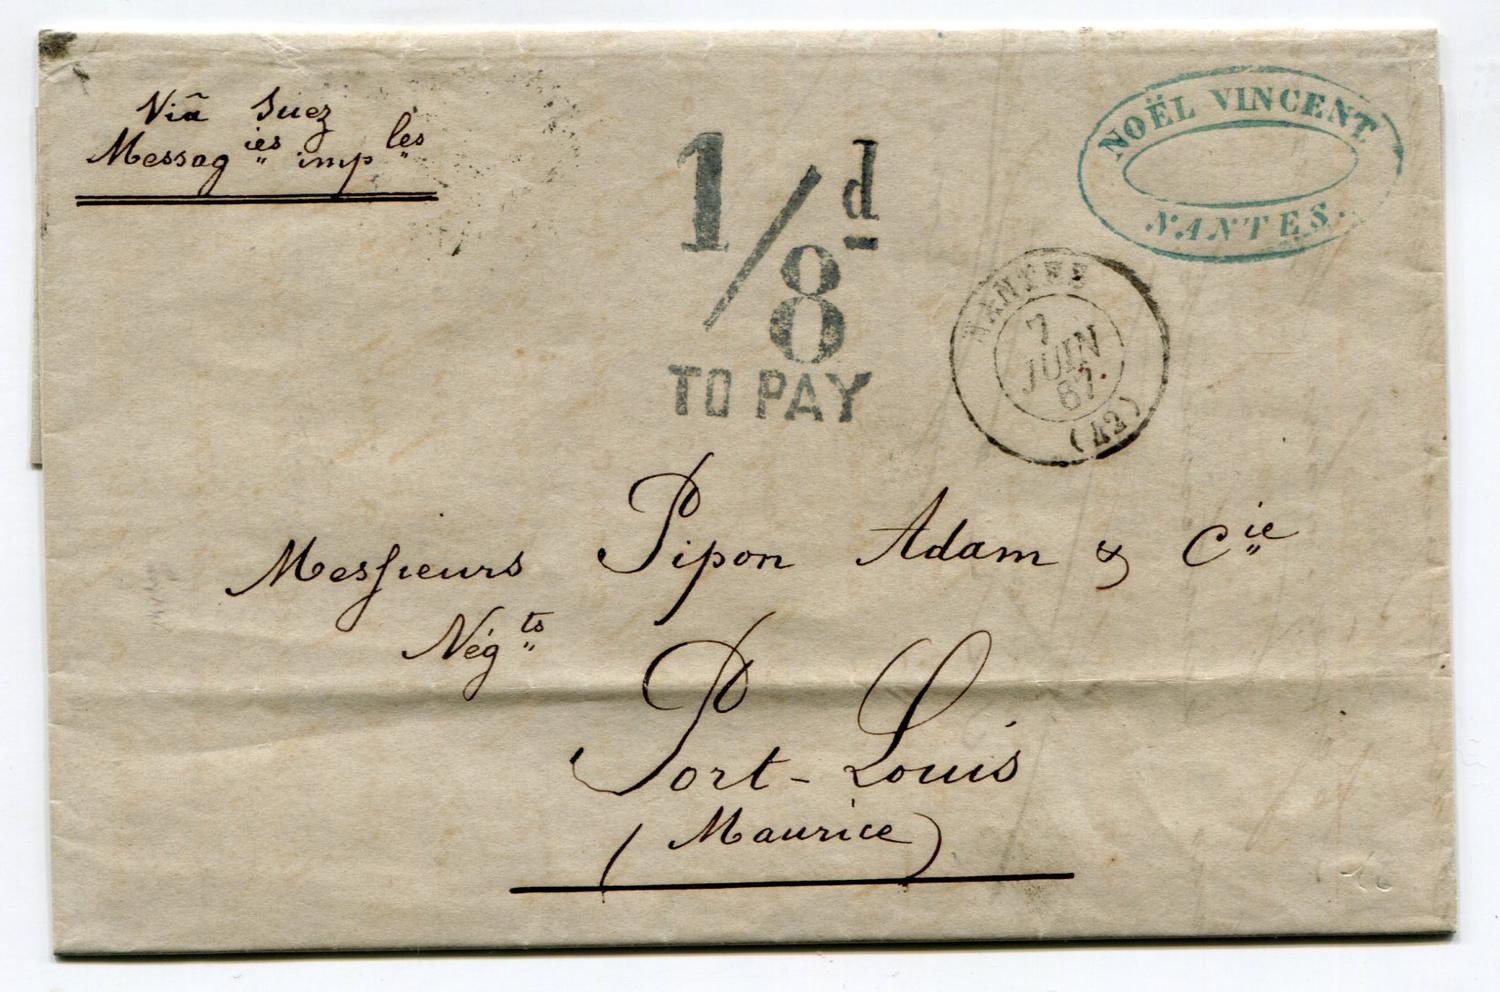 Viã Suez
Messag ies imp les
NOËL VINCENT
NANTES.
1/8 d
TO PAY
NANTES
7
JUIN
67
(42)
Messieurs Pipon Adam & Cie
Négts
Port-Louis
(Maurice)